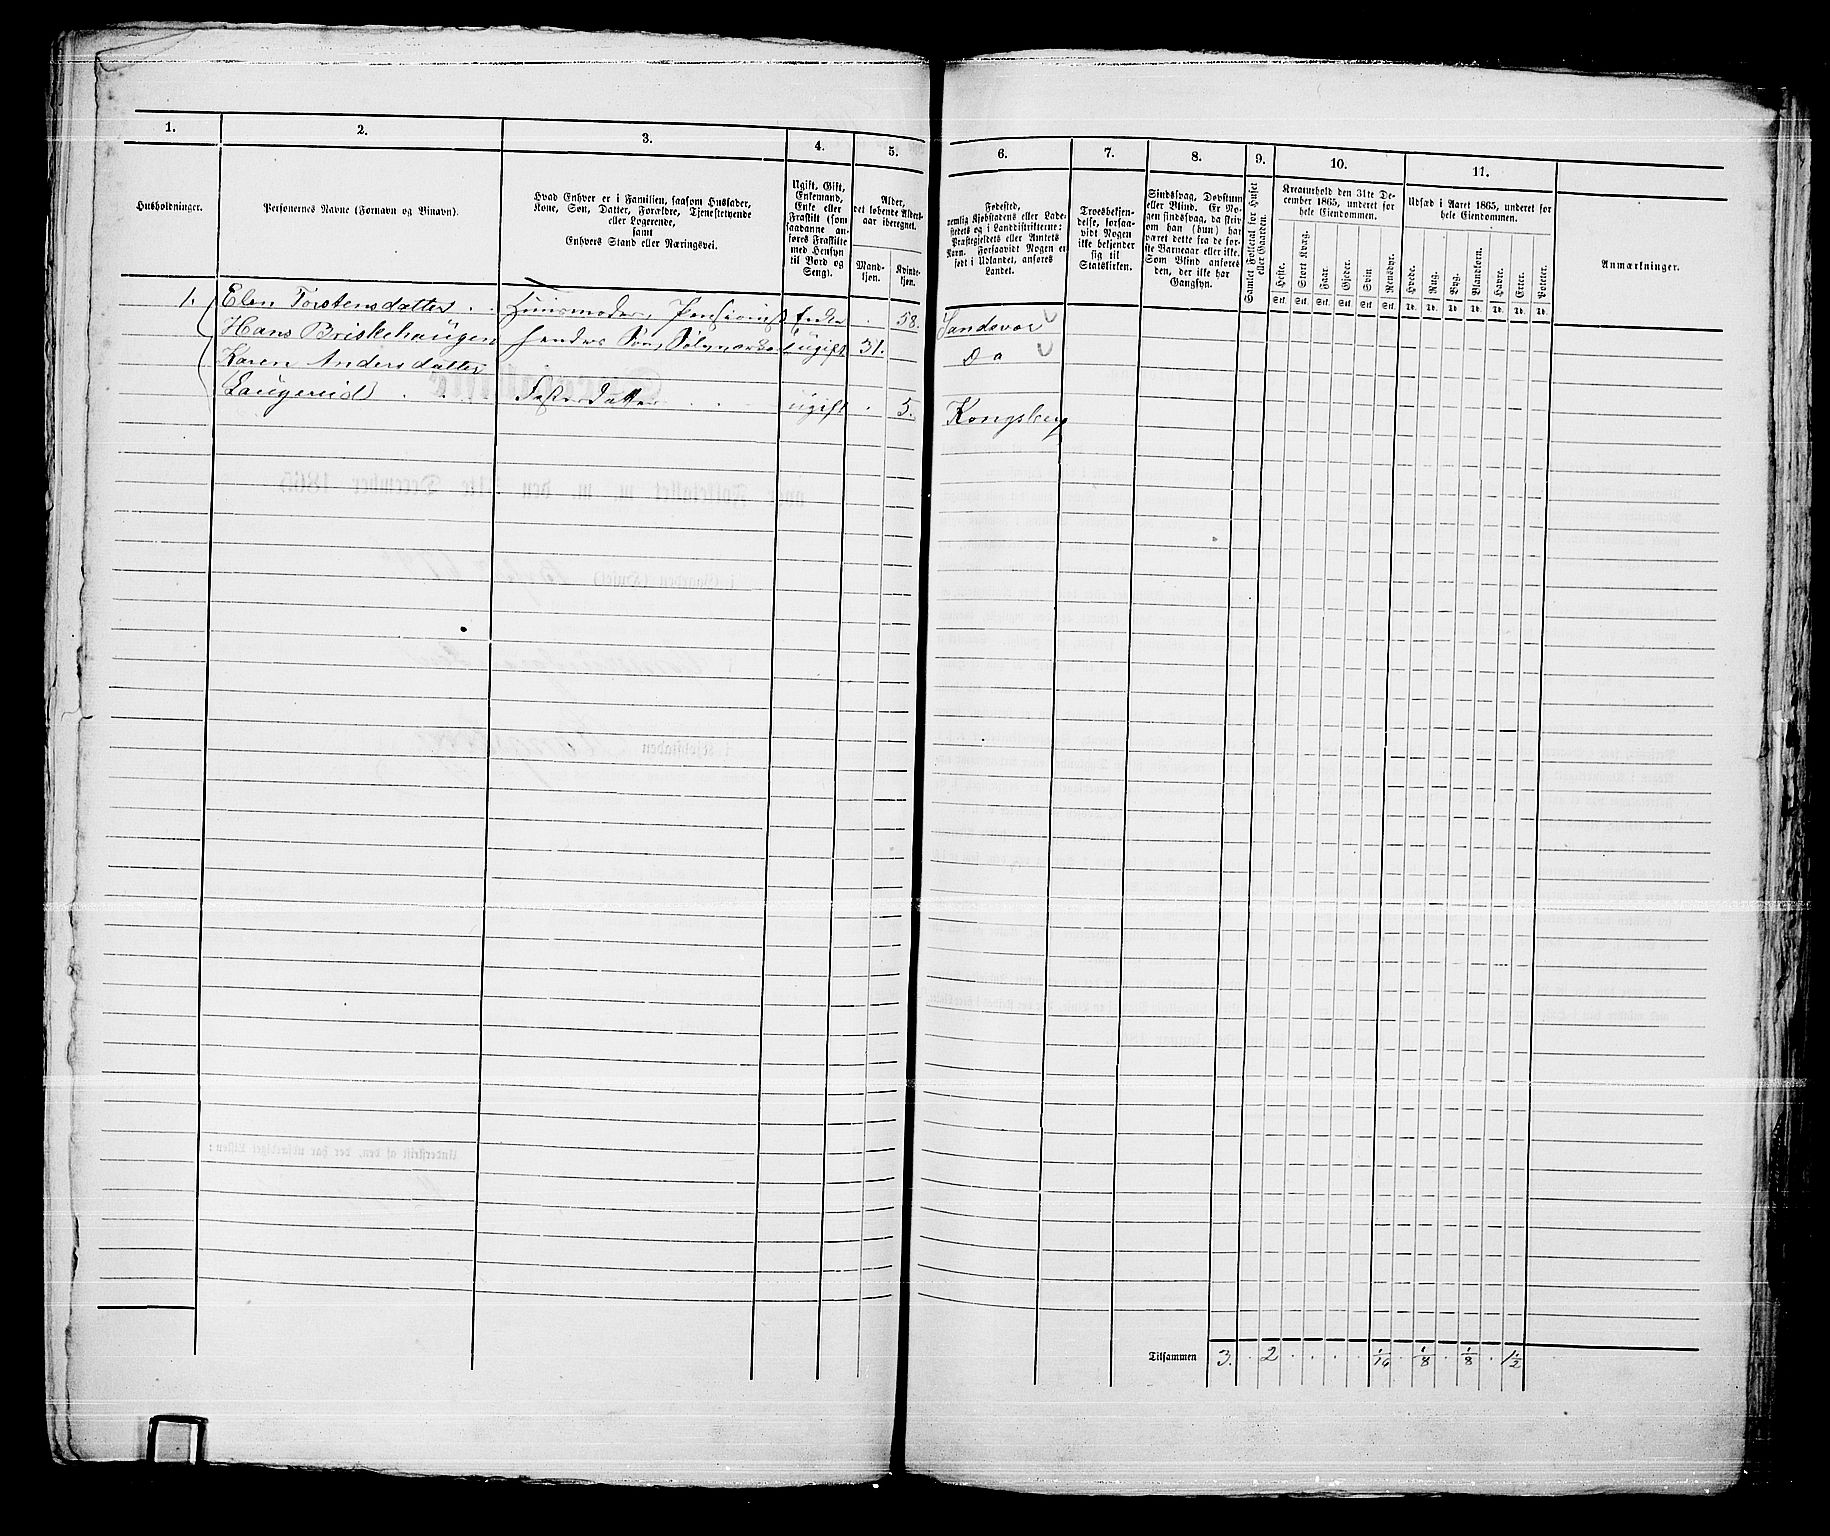 1. 2. 3. 4. 5. 6. 7. 8. 9. 10. 11.
Husholdninger.
Personernes Navne (Fornavn og Binavn).
Hvad Enhver er i Familien, saasom Husfader,
Kone, Søn, Datter, Forældre, Tjenestetyende
eller Logerende,
samt
Enhvers Stand eller Næringsvei.
Ugift, Gift,
Enkemand,
Enke eller
Fraskilt (som
saadanne an-
føres Fraskilte
med Hensyn
til Bord og
Seng).
Alder,
det løbende Alders-
aar iberegnet.
Mand-
kjøn.
Kvinde-
kjøn.
Fødested,
nemlig Kjøbstadens eller Lade-
stedets og i Landdistrikterne:
Præstegjeldets eller Amtets
Navn. Forsaavidt Nogen er
født i Udlandet, anføres
Landet.
Troesbekjen-
delse, forsaa-
vidt Nogen
ikke bekjender
sig til
Statskirken.
Sindssvag, Døvstum
eller Blind. Er No-
gen sindssvag, da skriv
om han (hun) har
været dette fra de før-
ste Barneaar eller ikke.
Som Blind anføres
den, der ikke har
Gangsyn.
Samlet Folketal for Huset
eller Gaarden.
Kreaturhold den 31te De-
cember 1865, underet for
hele Eiendommen.
Heste.
Stort Kvæg.
Faar.
Gjeder.
Svin
Rensdyr.
Stk. Stk. Stk. Stk. Stk. Stk.
Udsæd i Aaret 1865, underet for
hele Eiendommen.
Hvede.
Rug.
Byg.
Blandkorn.
Havre.
Erter.
Poteter.
Td. Td. Td. Td. Td. Td. Td.
Anmærkninger.
1. Elen Torstensdatter . . Huusmoder, Pensionist Enke . 58. Sandsvær
Hans Briskehaugen hendes Søn, Sølvarbei ugift 31. Do
Karen Andersdatter
Laugerud . . . Søsterdatter . . ugift . 5. Kongsberg
Tilsammen 3. . 2 . . . . 1/16 . 1/8 . 1/8 . 1 1/2